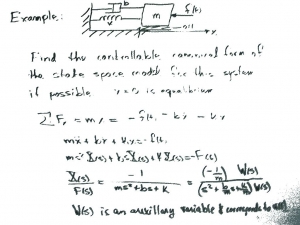 Example:
b
m
f(t)
k
x
Find the controllable canonical form of
the state space model for this system
if possible x = 0 is equilibrium
∑Fx = mẍ = -f(t) - bẋ - kx
mẍ + bẋ + kx = -f(t)
ms² X(s) + bs X(s) + k X(s) = -F(s)
X(s)/F(s) = -1/(ms²+bs+k) = (-1/m) W(s)/((s² + b/m s + k/m) W(s))
W(s) is an auxillary variable & corresponds to